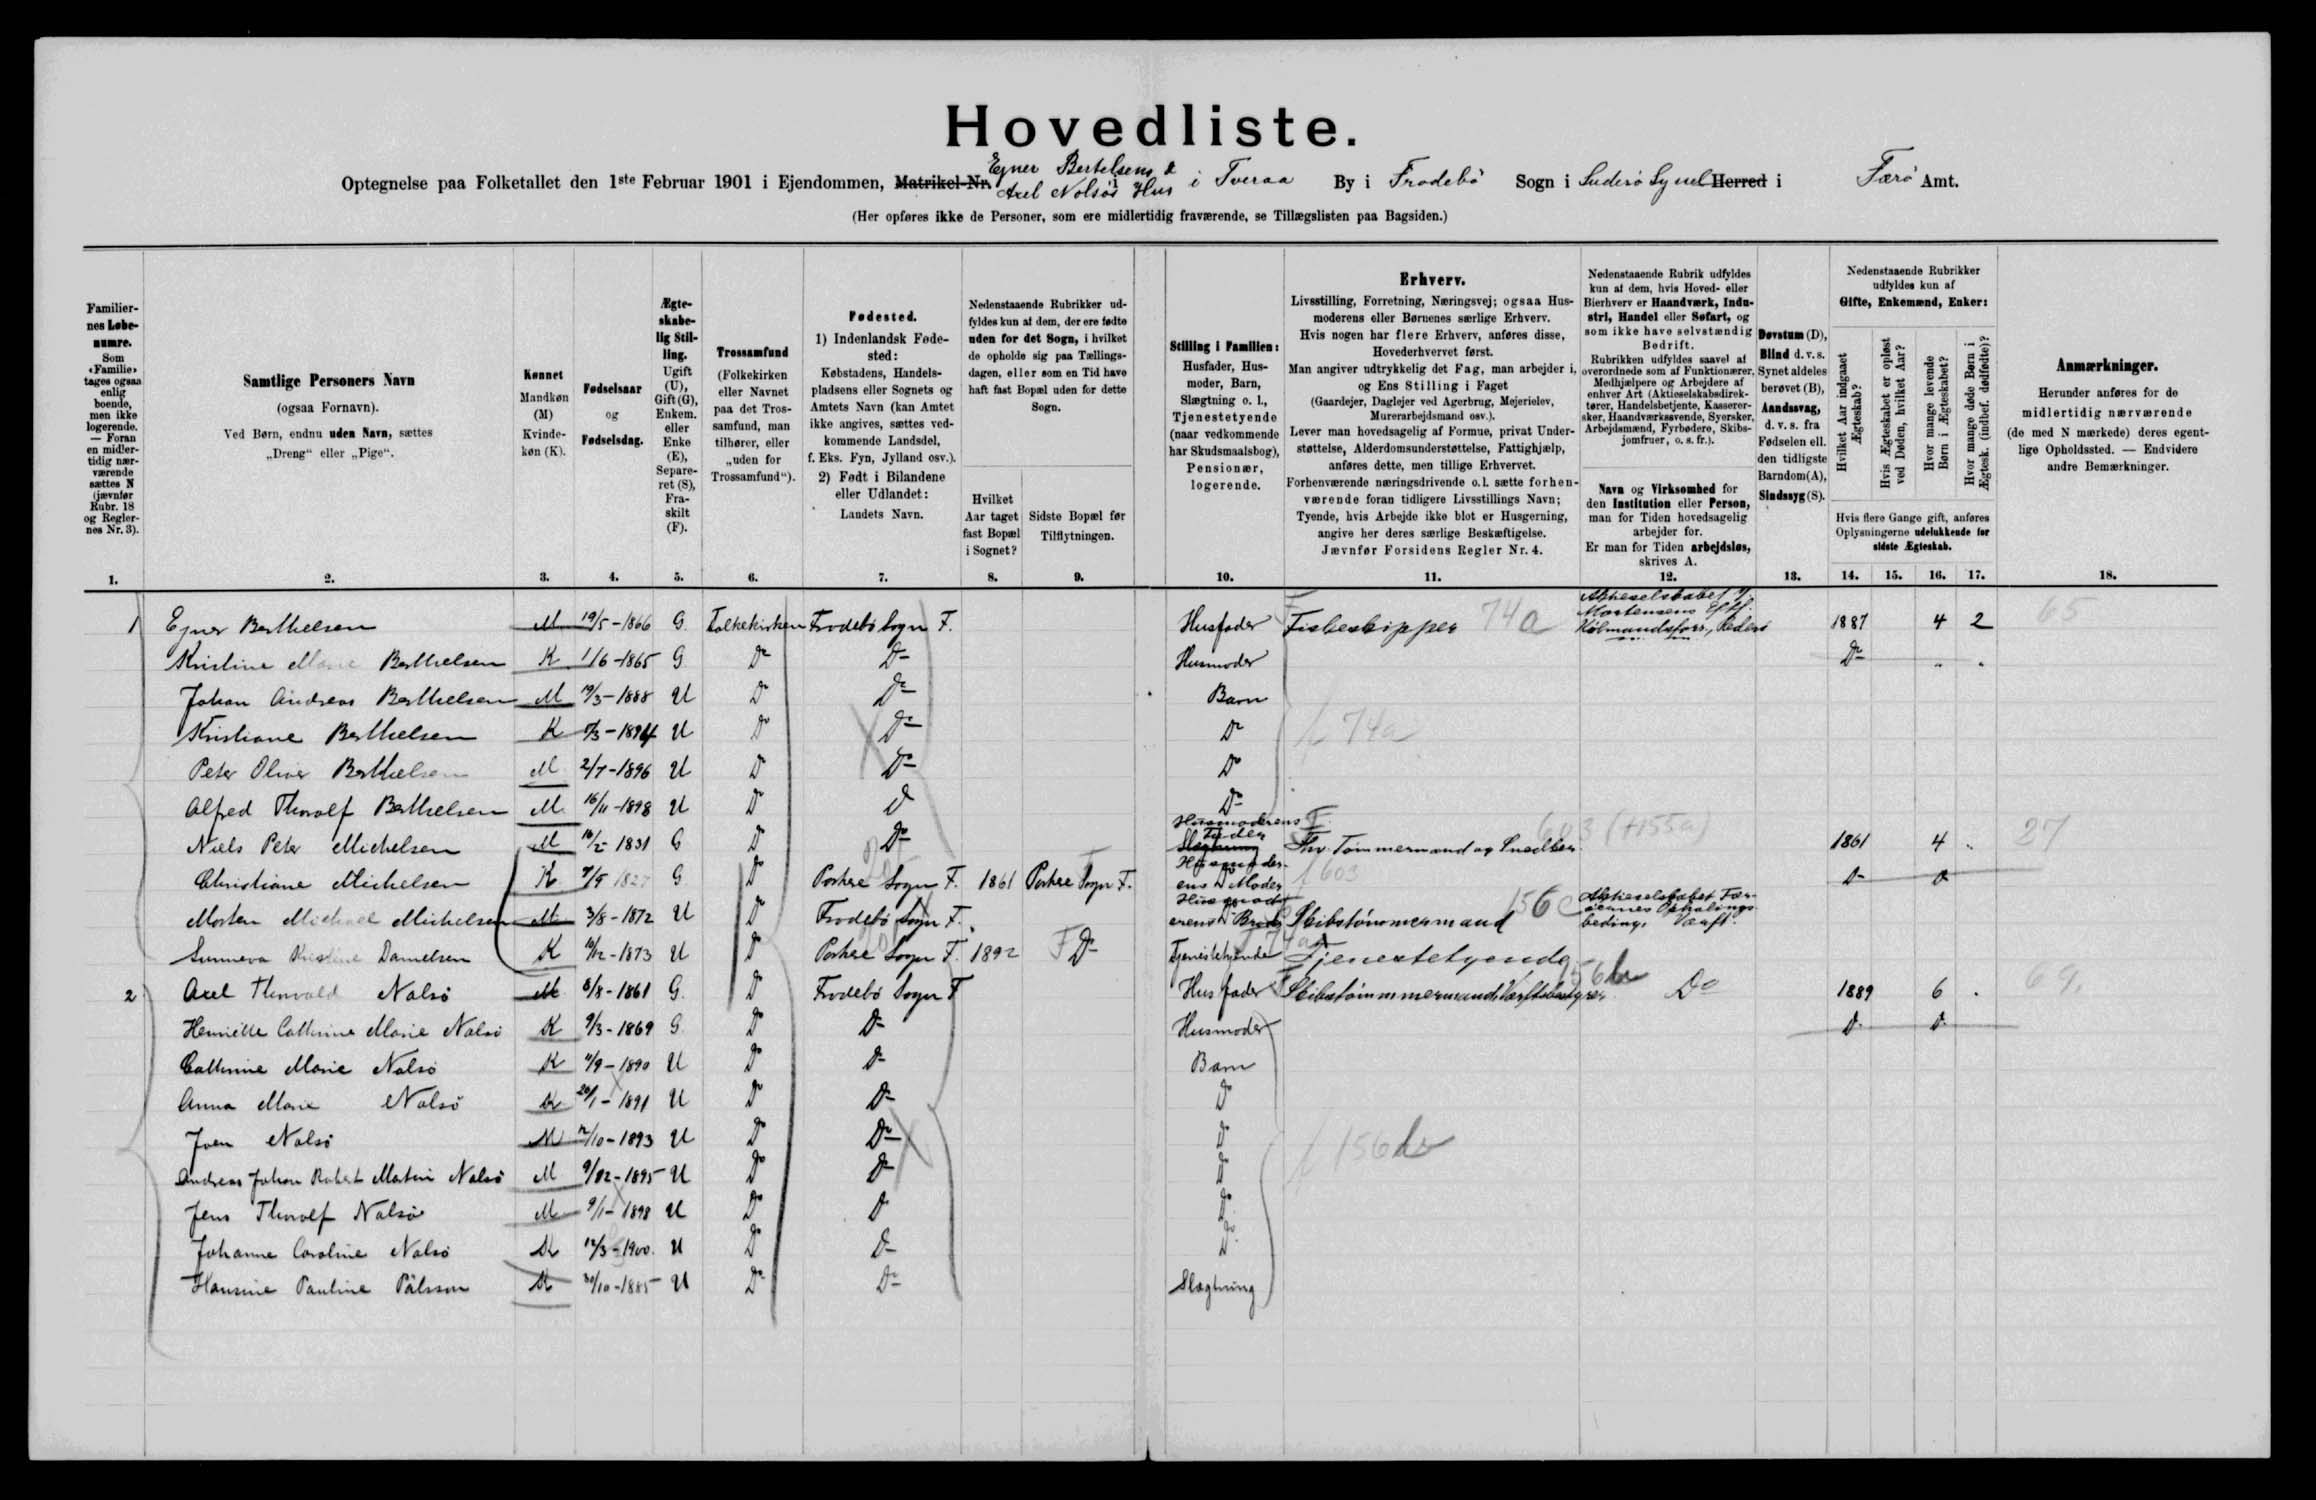 Hovedliste.
Optegnelse paa Folketallet den 1ste Februar 1901 i Ejendommen, Matrikel-Nr. Ejner Bertelsens & Axel Nolsøs Hus i Tveraa By i Frodebø Sogn i Suderø Syssel Herred i Færø Amt.
(Her opføres ikke de Personer, som ere midlertidig fraværende, se Tillægslisten paa Bagsiden.)
Familiernes Løbenumre.
Som «Familie» tages ogsaa enlig boende, men ikke logerende. — Foran en midlertidig nærværende sættes N (jævnfør Rubr. 18 og Reglernes Nr. 3).
Samtlige Personers Navn
(ogsaa Fornavn).
Ved Børn, endnu uden Navn, sættes „Dreng“ eller „Pige“.
Kønnet
Mandkøn (M)
Kvindekøn (K).
Fødselsaar og Fødselsdag.
Ægteskabelig Stilling.
Ugift (U), Gift (G), Enkem. eller Enke (E), Separeret (S), Fraskilt (F).
Trossamfund
(Folkekirken eller Navnet paa det Trossamfund, man tilhører, eller „uden for Trossamfund“).
Fødested.
1) Indenlandsk Fødested:
Købstadens, Handelspladsens eller Sognets og Amtets Navn (kan Amtet ikke angives, sættes vedkommende Landsdel, f. Eks. Fyn, Jylland osv.).
2) Født i Bilandene eller Udlandet:
Landets Navn.
Nedenstaaende Rubrikker udfyldes kun af dem, der ere fødte uden for det Sogn, i hvilket de opholde sig paa Tællingsdagen, eller som en Tid have haft fast Bopæl uden for dette Sogn.
Hvilket Aar taget fast Bopæl i Sognet?
Sidste Bopæl før Tilflytningen.
Stilling i Familien:
Husfader, Husmoder, Barn, Slægtning o. l., Tjenestetyende (naar vedkommende har Skudsmaalsbog), Pensionær, logerende.
Erhverv.
Livsstilling, Forretning, Næringsvej; ogsaa Husmoderens eller Børnenes særlige Erhverv.
Hvis nogen har flere Erhverv, anføres disse, Hovederhvervet først.
Man angiver udtrykkelig det Fag, man arbejder i, og Ens Stilling i Faget
(Gaardejer, Daglejer ved Agerbrug, Mejerielev, Murerarbejdsmand osv.).
Lever man hovedsagelig af Formue, privat Understøttelse, Alderdomsunderstøttelse, Fattighjælp, anføres dette, men tillige Erhvervet.
Forhenværende næringsdrivende o. l. sætte forhenværende foran tidligere Livsstillings Navn;
Tyende, hvis Arbejde ikke blot er Husgerning, angive her deres særlige Beskæftigelse.
Jævnfør Forsidens Regler Nr. 4.
Nedenstaaende Rubrik udfyldes kun af dem, hvis Hoved- eller Bierhverv er Haandværk, Industri, Handel eller Søfart, og som ikke have selvstændig Bedrift.
Rubrikken udfyldes saavel af overordnede som af Funktionærer, Medhjælpere og Arbejdere af enhver Art (Aktieselskabsdirektører, Handelsbetjente, Kasserersker, Haandværkssvende, Syersker, Arbejdsmænd, Fyrbødere, Skibsjomfruer, o. s. fr.).
Navn og Virksomhed for den Institution eller Person, man for Tiden hovedsagelig arbejder for.
Er man for Tiden arbejdsløs, skrives A.
Døvstum (D), Blind d. v. s. Synet aldeles berøvet (B), Aandssvag, d. v. s. fra Fødselen ell. den tidligste Barndom (A), Sindssyg (S).
Nedenstaaende Rubrikker udfyldes kun af Gifte, Enkemænd, Enker:
Hvilket Aar indgaaet Ægteskab?
Hvis Ægteskabet er opløst ved Døden, hvilket Aar?
Hvor mange levende Børn i Ægteskabet?
Hvor mange døde Børn i Ægtesk. (indbef. dødfødte)?
Hvis flere Gange gift, anføres Oplysningerne udelukkende for sidste Ægteskab.
Anmærkninger.
Herunder anføres for de midlertidig nærværende (de med N mærkede) deres egentlige Opholdssted. — Endvidere andre Bemærkninger.
1. 2. 3. 4. 5. 6. 7. 8. 9. 10. 11. 12. 13. 14. 15. 16. 17. 18.
1 Ejner Berthelsen M 19/5-1866 G. Folkekirken Frodebø Sogn F. Husfader Fiskeskipper 74a Aktieselskabet Mortensens Eftf. Købmandsforr., Rederi 1887 4 2 65
Kristine Marie Berthelsen K 1/6-1865 G Do Do Husmoder Do
Johan Andreas Berthelsen M 19/3-1888 U Do Do Barn
Kristiane Berthelsen K /3-1894 U Do Do Do 74a
Peter Oliver Berthelsen M 2/7-1896 U Do Do Do
Alfred Thorolf Berthelsen M 16/11-1898 U Do Do Do
Niels Peter Michelsen M 16/2-1831 G Do Do Husmoderens Fader Slægtning Fhv. Tømmermand og Snedker 603 (+155a) 1861 4 27
Christiane Michelsen K 1827 G. Do Porkere Sogn F. 1861 Porkere Sogn F. Husmoderens Moder 603 Do Do
Morten Michael Michelsen M 3/8-1872 U Do Frodebø Sogn F. Husmoderens Broder Skibstømmermand 156 c Aktieselskabet Færøernes Ophalingsbedings Værft.
Sunneva Kristine Danielsen K 16/12-1873 U Do Porkere Sogn F. 1892 F Do Tjenestetyende Tjenestetyende 74a
2 Axel Thorvald Nolsø M 8/8-1861 G. Do Frodebø Sogn F Husfader Skibstømmermand, Værftsbestyrer 156 b Do 1889 6 69.
Henriette Cathrine Marie Nolsø K 9/3-1869 G. Do Do Husmoder Do Do
Cathrine Marie Nolsø K 11/9-1890 U Do Do Barn
Anna Marie Nolsø K 20/1-1891 U Do Do Do
Joen Nolsø M 12/10-1893 U Do Do Do 156 b
Andreas Johan Robert Martin Nolsø M 9/02-1895 U Do Do Do
Jens Thorolf Nolsø M 9/1-1898 U Do Do Do
Johanne Caroline Nolsø K 12/3-1900. U Do Do Do
Hansine Pauline Pálsson K 30/10-1885 U Do Do Slægtning